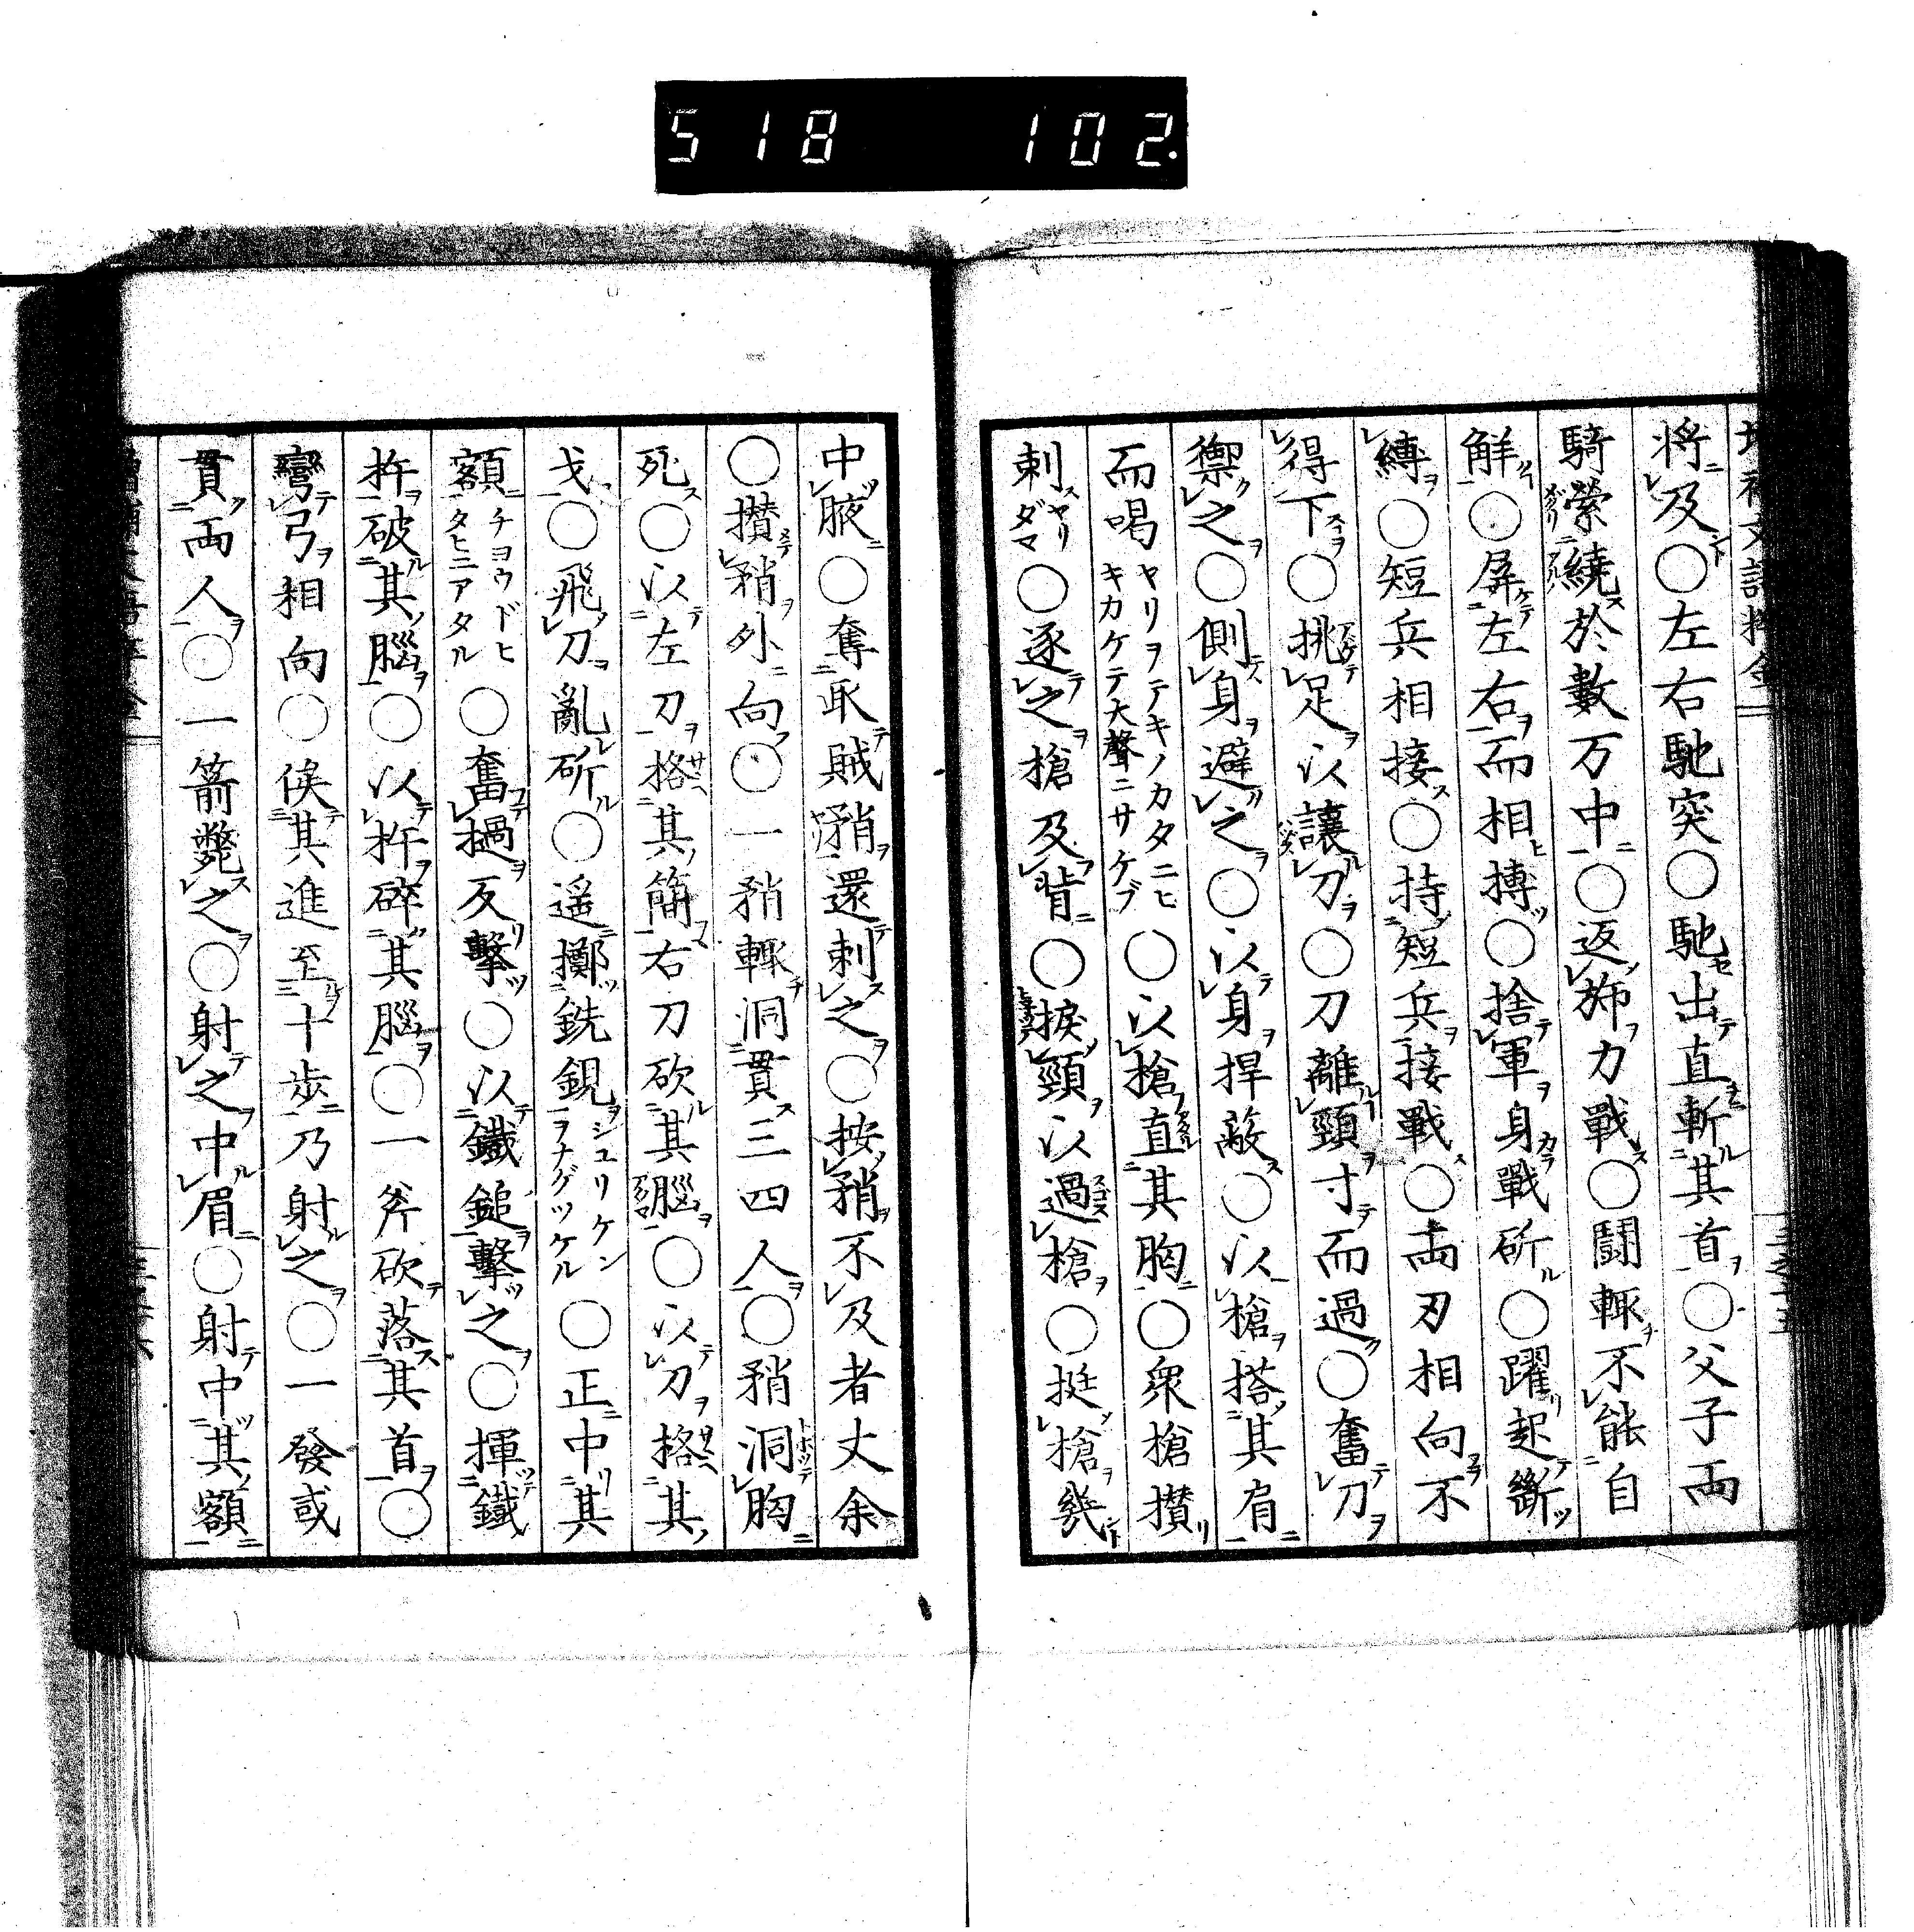 518 102.
将及○左右馳突○馳出直斬其首○父子両
騎縈繞於數万中○返旆力戰○鬪輙不能自
解○屏左右而相搏○捨軍身戰斫○躍起斷
縛○短兵相接○持短兵接戰○両刃相向不
得下○挑足以讓刀○刀離頸寸而過○奮刀
禦之○側身避之○以身捍敵○以槍搭其肩
而喝ヤリヲテキノカタニヒキカケテ大聲ニサケブ○以槍直其胸○衆槍攅
刺○逐之槍及背○捩頸以過槍○挺槍幾
中腋○奪取賊矟還刺之○按矟不及者丈余
○攅矟外向○一矟輙洞貫三四人○矟洞胸
死○以左刀格其簡右刀砍其腦○以刀格其
戈○飛刀亂斫○遥擲銑鋧シユリケンヲナゲツケル○正中其
額チヨウドヒタヒニアタル○奮撾反擊○以鐵鎚擊之○揮鐵
杵破其腦○以杵碎其腦○一斧砍落其首○
彎弓相向○俟其進至十歩乃射之○一發或
貫両人○一箭斃之○射之中眉○射中其額